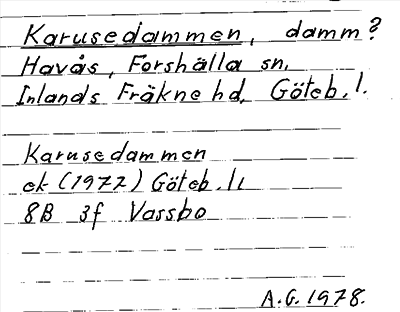 Karusedammen, damm?
Havås, Forshälla sn.
Inlands Fräkne hd, Göteb. l.
Karusedammen
ek (1977) Göteb. l.
8B 3f Vassbo
A.G. 1978.